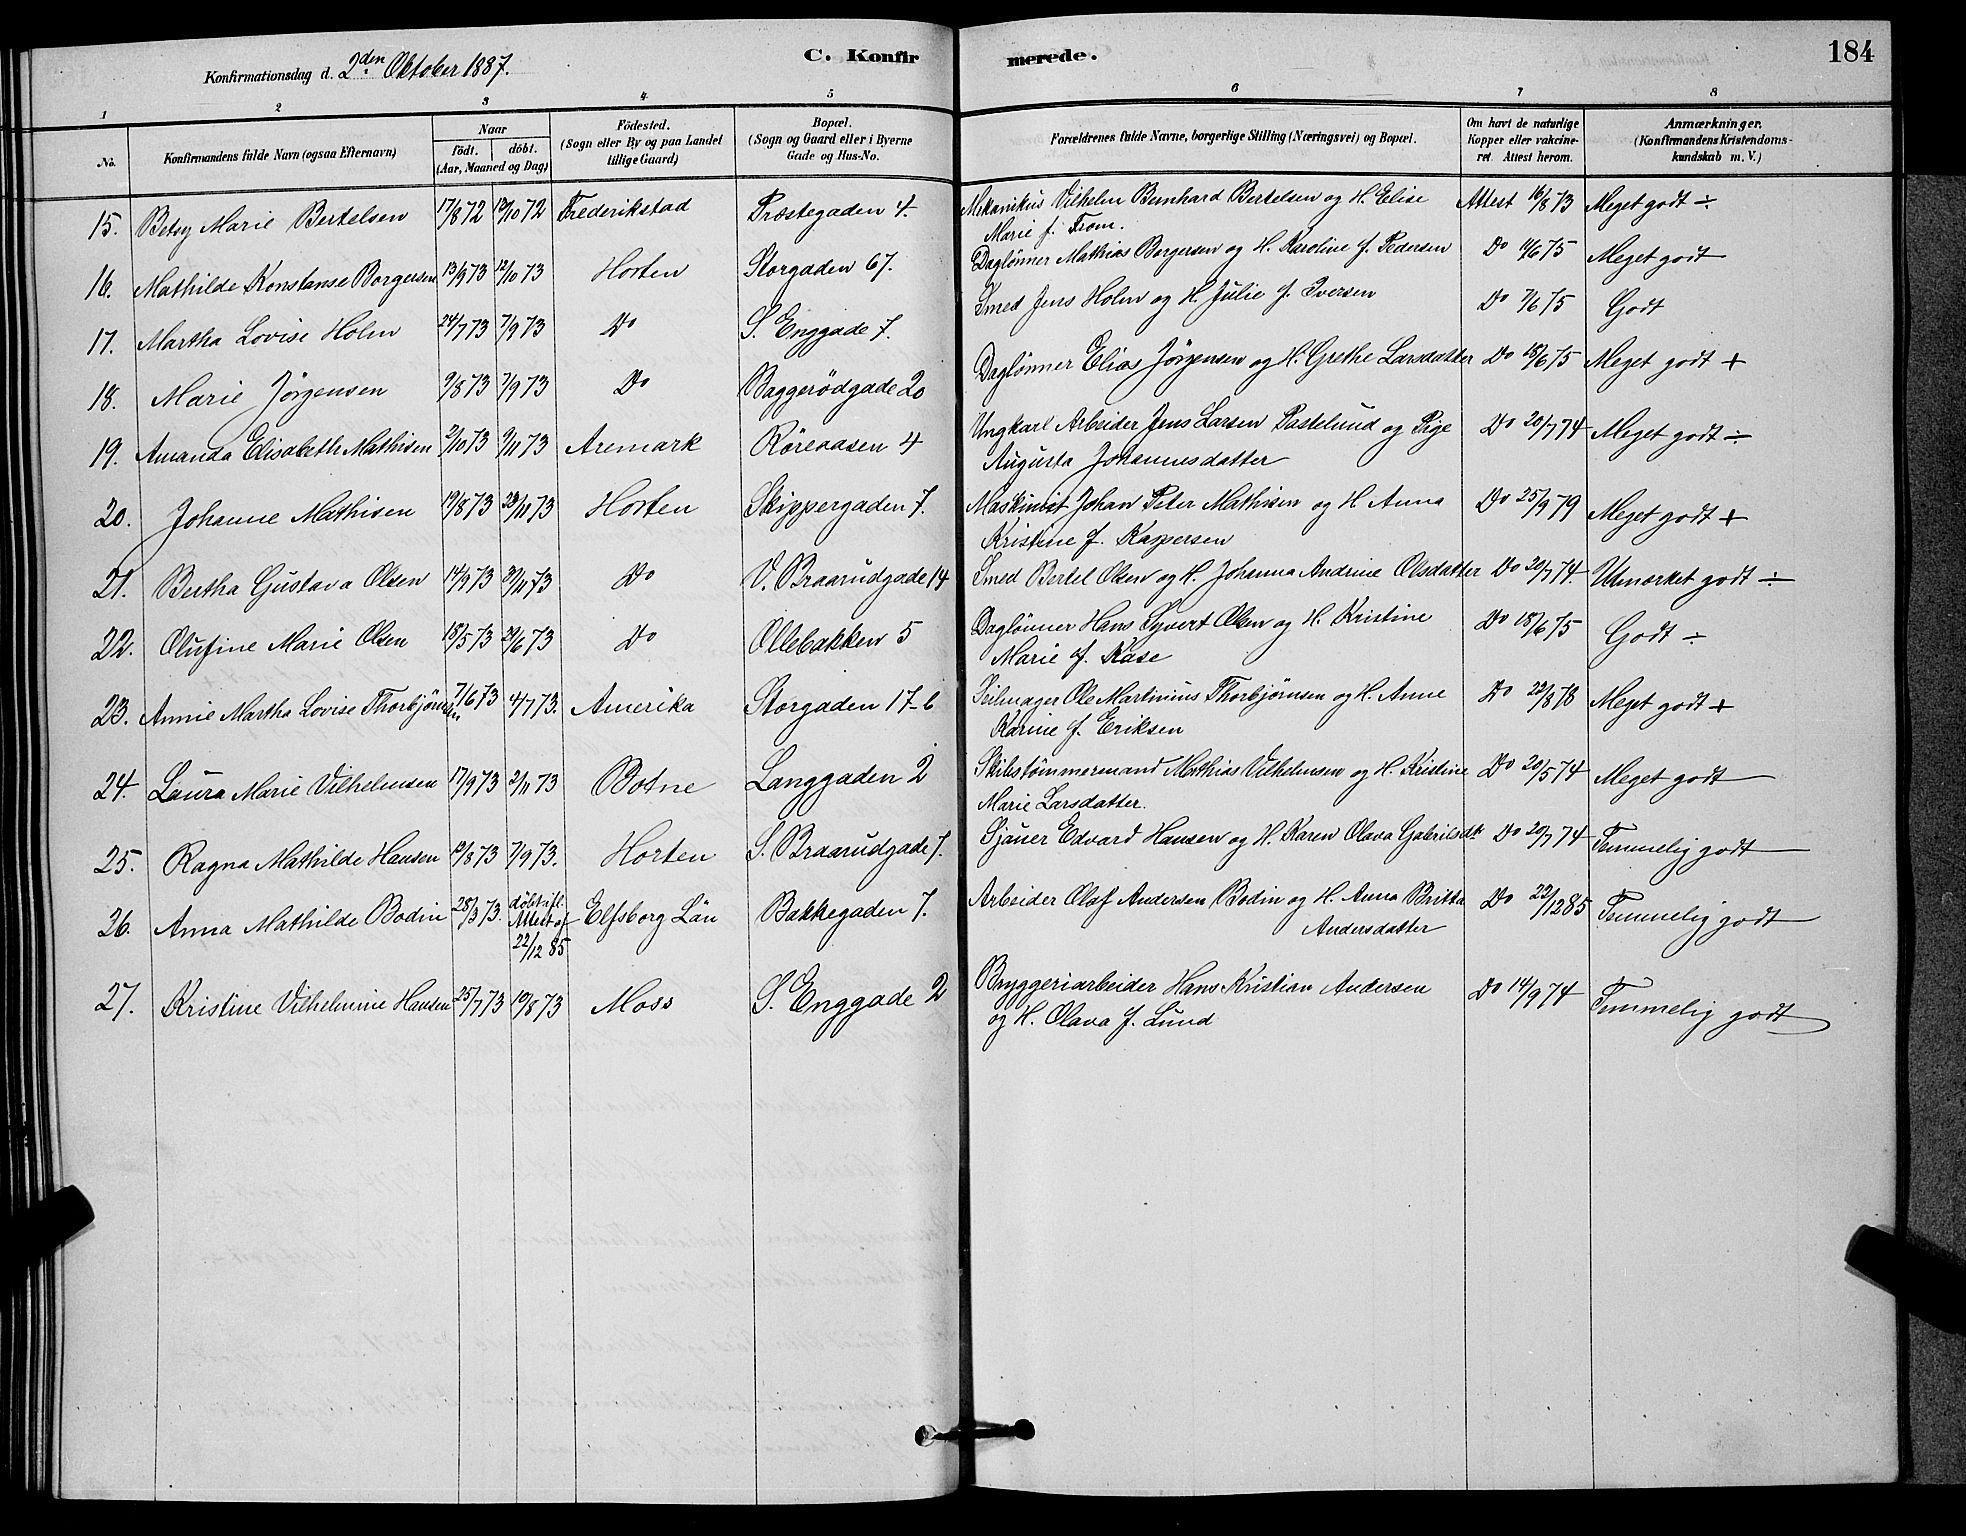 Konfirmationsdag d. 2den Oktober 1887.
C. Konfirmerede.
184
1 2 3 4 5 6 7 8
No.
Konfirmandens fulde Navn (ogsaa Efternavn)
Naar
født. døbt.
(Aar, Maaned og Dag)
Födested.
(Sogn eller By og paa Landet
tillige Gaard)
Bopæl.
(Sogn og Gaard eller i Byerne
Gade og Hus-No.
Forældrenes fulde Navne, borgerlige Stilling (Næringsvei) og Bopæl.
Om havt de naturlige
Kopper eller vakcine-
ret. Attest herom.
Anmærkninger.
(Konfirmandens Kristendoms-
kundskab m. V.)
15. Betsy Marie Bertelsen 17/8 72 /10 72 Frederikstad Præstegaden 4. Mekanikus Vilhelm Bernhard Bertelsen og H. Elise Attest 16/8 73 Meget godt ÷
Marie f. From.
16. Mathilde Konstanse Borgersen 13/9 73 12/10 73 Horten Storgaden 67. Daglønner Mathias Borgersen og H. Karoline f. Pedersen Do /6 75 Meget godt
17. Martha Lovise Holm 24/7 73 7/9 73 Do S. Enggade 7. Smed Jens Holm og H. Julie f. Iversen Do 7/6 75 Godt
18. Marie Jørgensen 9/8 73 7/9 73 Do Baggerødgade 20 Daglønner Elias Jørgensen og H. Grethe Larsdatter Do 18/6 75 Meget godt +
19. Amanda Elisabeth Mathisen 2/10 73 9/11 73 Aremark Røreaasen 4 Ungkarl Arbeider Jens Larsen Pastelund og Pige Do 20/7 74 Meget godt ÷
Augusta Johannesdatter
20. Johanne Mathisen 19/8 73 23/11 73 Horten Skippergaden 7. Maskinist Johan Peter Mathisen og H Anna Do 25/9 79 Meget godt +
Kristine f. Kaspersen
21. Bertha Gustava Olsen 14/9 73 3/11 73 Do V. Braarudgade 14 Smed Bertel Olsen og H. Johanna Andrine Olsdatter Do 20/7 74. Utmærket godt ÷
22. Olufine Marie Olsen 18/5 73 29/6 73 Do Ollebakken 5 Daglønner Hans Syvert Olsen og H. Kristine Do 18/6 75 Godt ÷
Marie f. Kase
23. Annie Martha Lovise Thorbjørnsen 7/6 73 4/7 73. Amerika Storgaden 17-b Seilmager Ole Martinius Thorbjørnsen og H. Anne Do 22/8 78 Meget godt +
Karine f. Eriksen
24. Laura Marie Vilhelmsen 17/9 73 2/11 73 Botne Langgaden 2 Skibstømmermand Mathias Vilhelmsen og H. Kristine Do 20/5 74 Meget godt
Marie Larsdatter.
25. Ragna Mathilde Hansen /8 73 7/9 73. Horten S. Braarudgade 7. Sjauer Edvard Hansen og H. Karen Olava Gabrielsdt Do 20/7 74 Temmelig godt
26. Anna Mathilde Bodin 28/3 73. døbt ifl. Elfsborg Län Bakkegaden 7. Arbeider Olaf Andersen Bodin og H. Anna Britta Do 22/12 85 Temmelig godt
Attest af Andersdatter
22/12 85
27. Kristine Vilhelmine Hansen 25/7 73 19/8 73 Moss S. Enggade 2 Bryggeriarbeider Hans Kristian Andersen Do 14/9 74 Temmelig godt
og H. Olava f. Lund